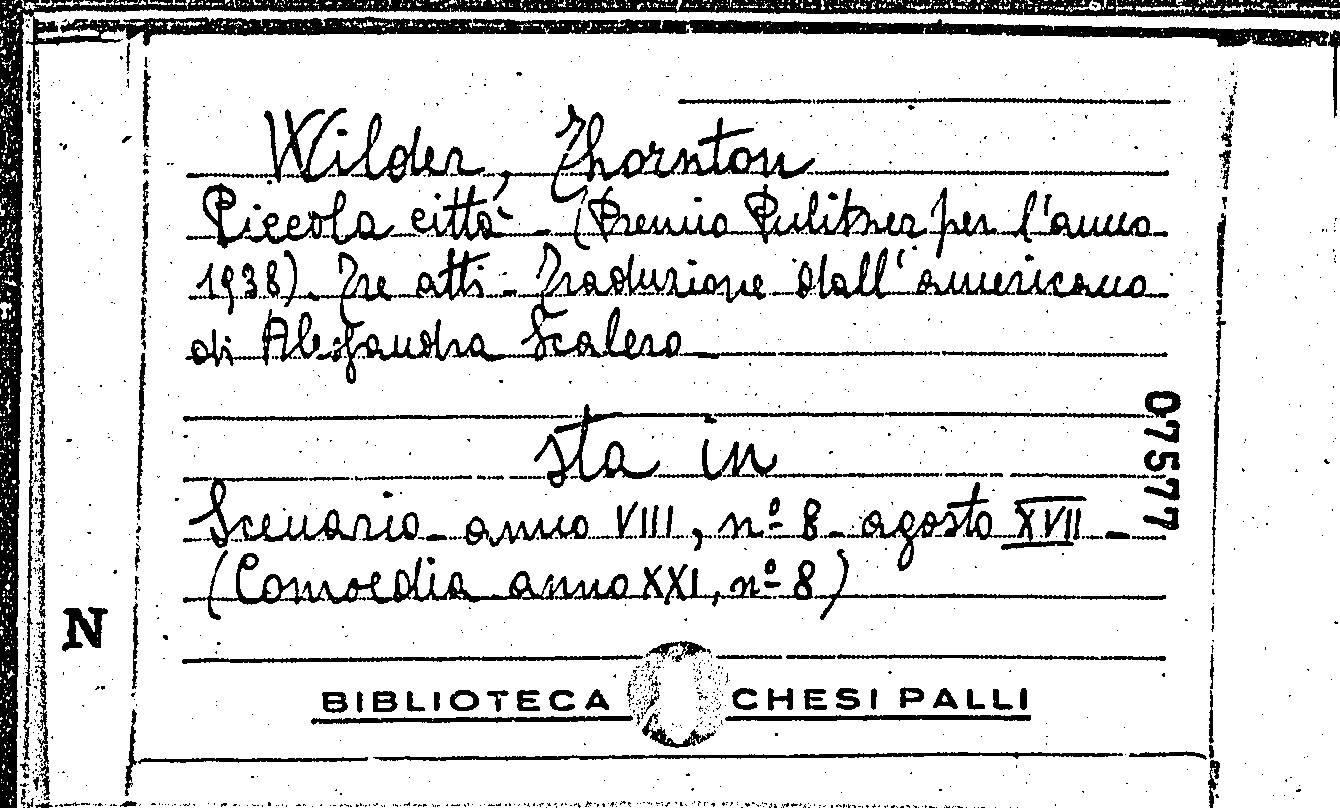 Wilder, Thornton
Piccola città - (Premio Pulitzer per l'anno
1938). Tre atti - Traduzione dall'americano
di Alessandra Scalero -
sta in
Scenario - anno VIII, nº 8 - agosto XVII -
(Comoedia anno XXI, nº 8)
07577
N
BIBLIOTECA CHESI PALLI